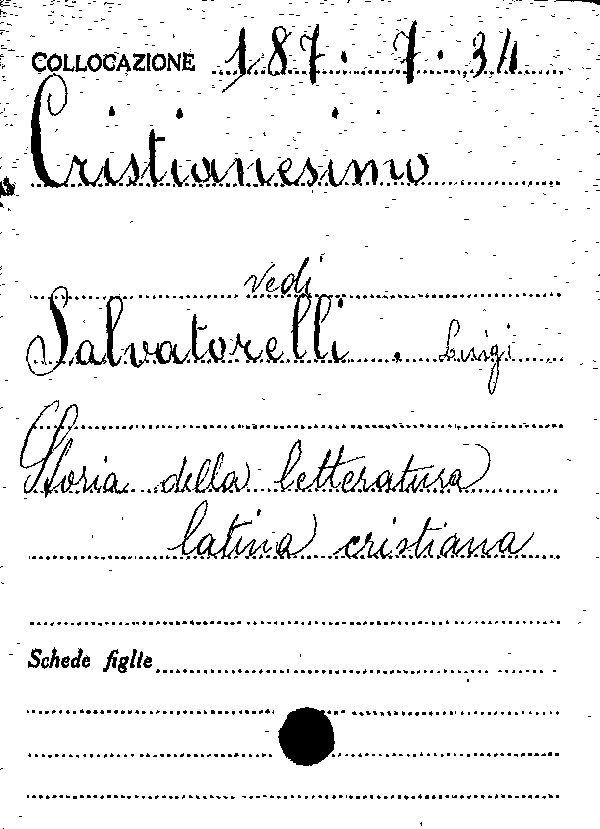 COLLOCAZIONE 187. 7. 34
Cristianesimo
vedi
Salvatorelli. Luigi
Storia della letteratura
latina cristiana
Schede figlie